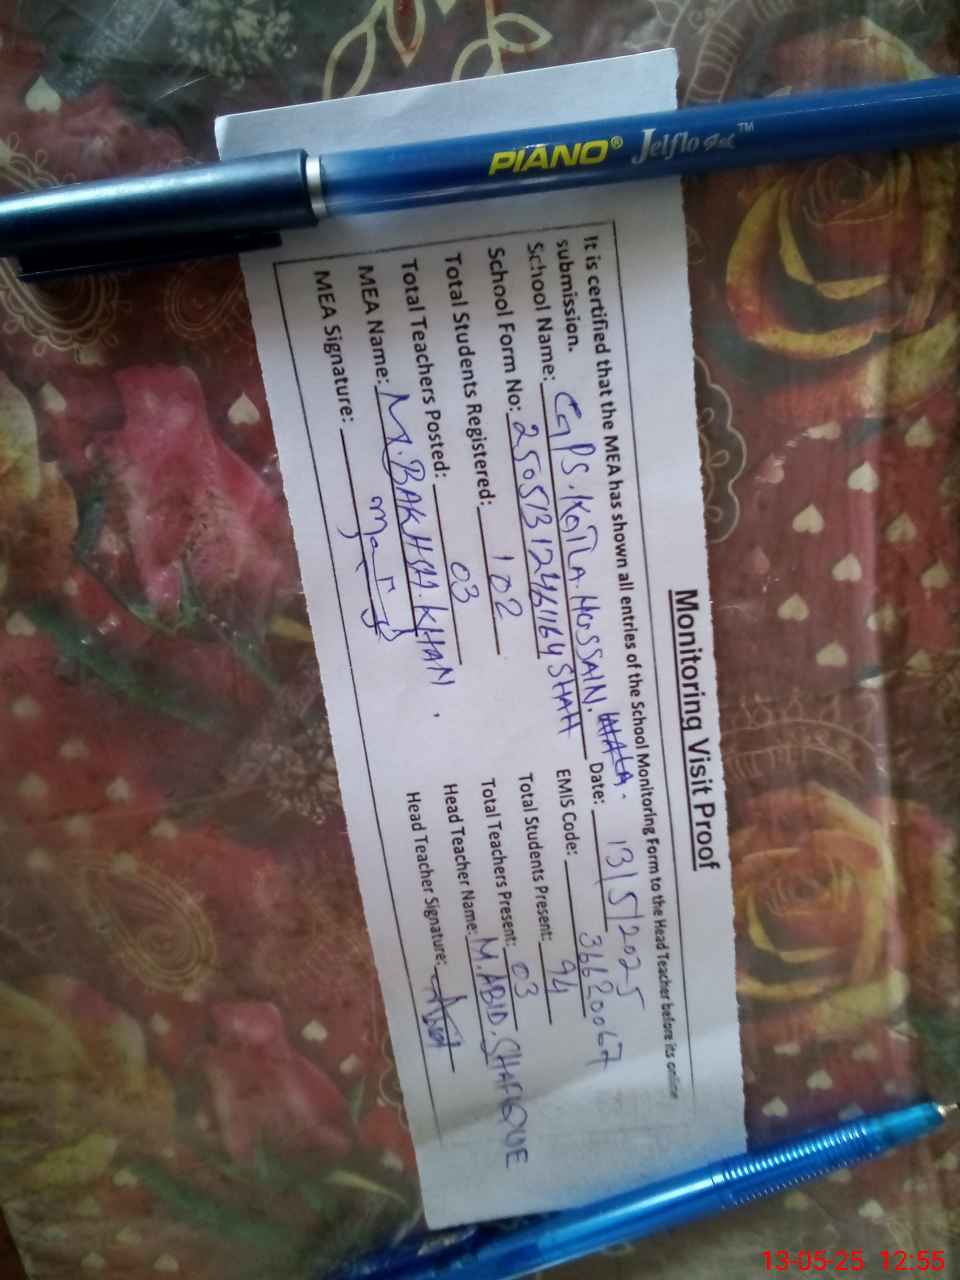 PIANO® Jelflo Gel™
Monitoring Visit Proof
It is certified that the MEA has shown all entries of the School Monitoring Form to the Head Teacher before its online
submission.
School Name: GPS. KOTLA. HUSSAIN. SHAH WALA. Date: 13/5/2025
School Form No: 25051312461164 EMIS Code: 36620067
Total Students Registered: 102 Total Students Present: 94
Total Teachers Posted: 03 Total Teachers Present: 03
MEA Name: M. BAKHSH. KHAN. Head Teacher Name: M. ABID. SHAFIQUE
MEA Signature: Head Teacher Signature:
13-05-25 12:55